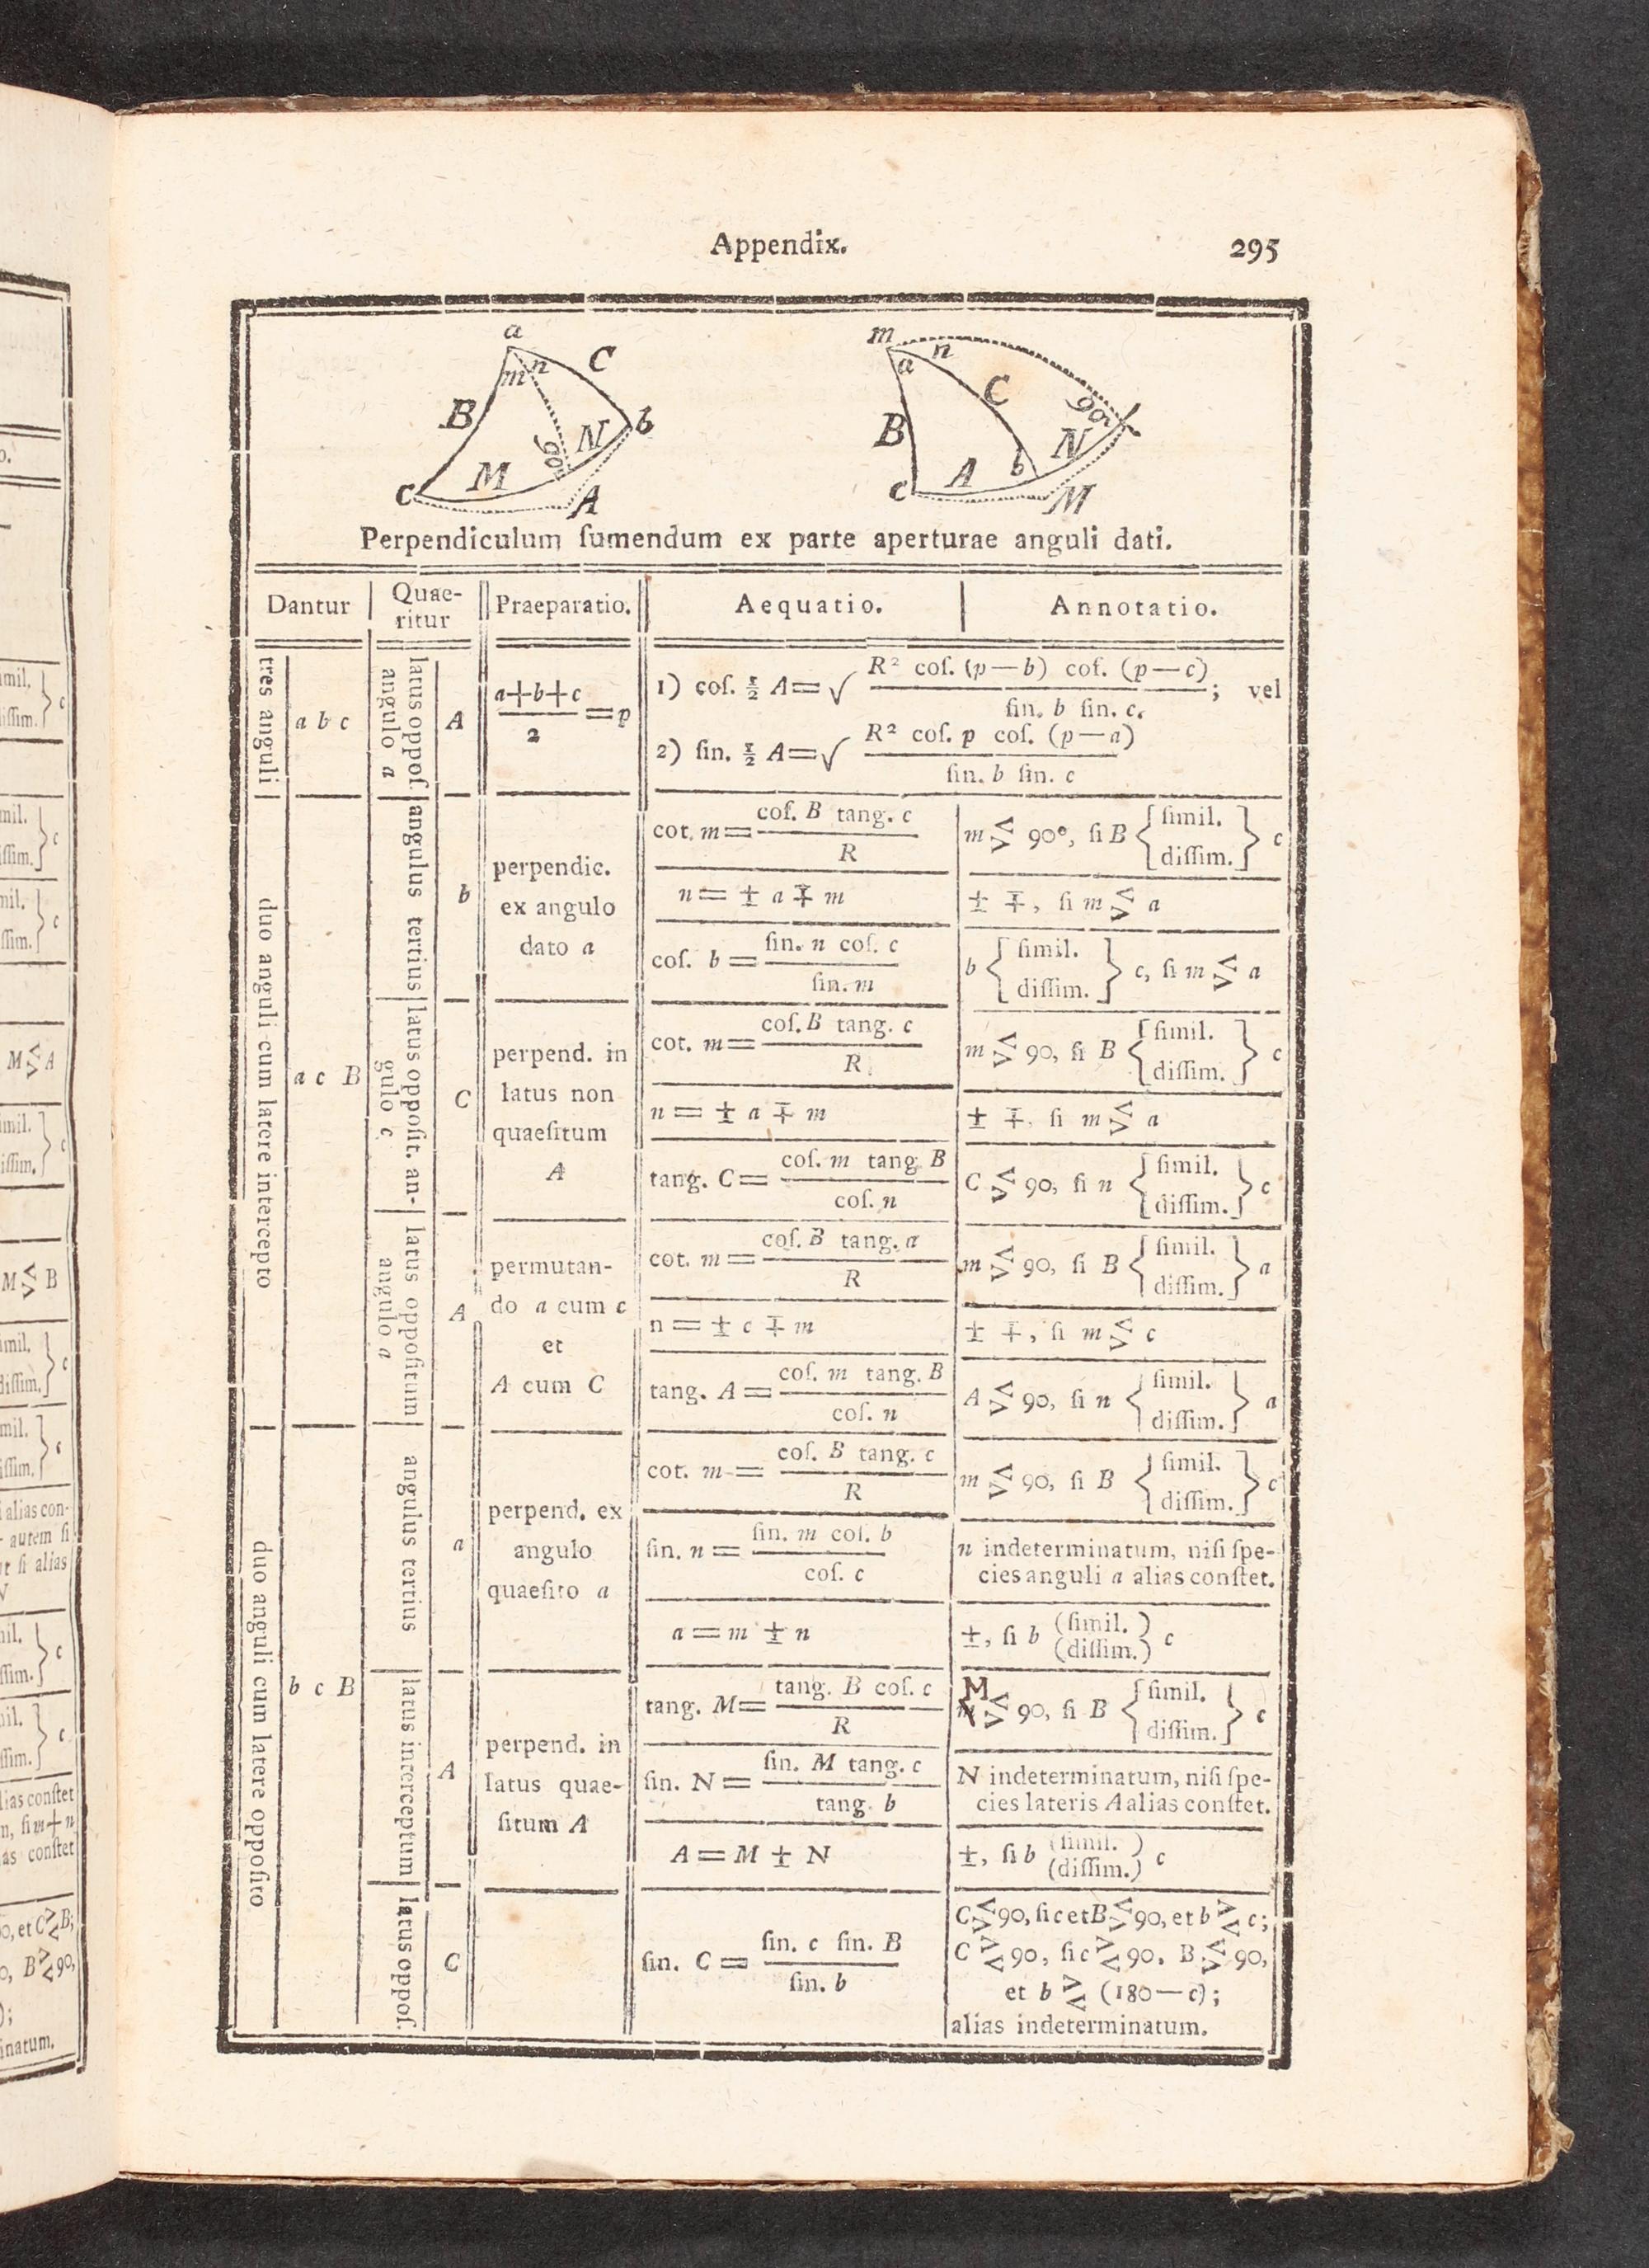 Appendix.
295
a
C
m n
B
N
b
90°
M
c
A
m
n
a
C
90°
B
N
A
b
c
M
Perpendiculum ſumendum ex parte aperturae anguli dati.
Dantur
Quae-
ritur
Praeparatio.
Aequatio.
Annotatio.
tres anguli
a b c
latus oppoſ.
angulo a
A
a+b+c
2
=p
1) coſ. ½ A=√ R² coſ. (p—b) coſ. (p—c) ; vel
ſin. b ſin. c.
2) ſin. ½ A=√ R² coſ. p coſ. (p—a)
ſin. b ſin. c
duo anguli cum latere intercepto
a c B
angulus tertius
b
perpendic.
ex angulo
dato a
cot. m= coſ. B tang. c
R
m <> 90°, ſi B { ſimil.
diſſim. } c
n = ± a ∓ m
± ∓, ſi m <> a
coſ. b = ſin. n coſ. c
ſin. m
b { ſimil.
diſſim. } c, ſi m <> a
latus oppoſit. an-
gulo c
C
perpend. in
latus non
quaeſitum
A
cot. m= coſ. B tang. c
R
m <> 90, ſi B { ſimil.
diſſim. } c
n = ± a ∓ m
± ∓, ſi m <> a
tang. C= coſ. m tang. B
coſ. n
C <> 90, ſi n { ſimil.
diſſim. } c
latus oppoſitum
angulo a
A
permutan-
do a cum c
et
A cum C
cot. m= coſ. B tang. a
R
m <> 90, ſi B { ſimil.
diſſim. } a
n = ± c ∓ m
± ∓, ſi m <> c
tang. A = coſ. m tang. B
coſ. n
A <> 90, ſi n { ſimil.
diſſim. } a
duo anguli cum latere oppoſito
b c B
angulus tertius
a
perpend. ex
angulo
quaeſito a
cot. m = coſ. B tang. c
R
m <> 90, ſi B { ſimil.
diſſim. } c
ſin. n = ſin. m coſ. b
coſ. c
n indeterminatum, niſi ſpe-
cies anguli a alias conſtet.
a = m ± n
±, ſi b (ſimil. )
(diſſim.) c
latus interceptum
A
perpend. in
latus quae-
ſitum A
tang. M= tang. B coſ. c
R
M <> 90, ſi B { ſimil.
diſſim. } c
ſin. N = ſin. M tang. c
tang. b
N indeterminatum, niſi ſpe-
cies lateris A alias conſtet.
A = M ± N
±, ſi b (ſimil. )
(diſſim.) c
latus oppoſ.
C
ſin. C = ſin. c ſin. B
ſin. b
C <> 90, ſic et B <> 90, et b >< c;
C >< 90, ſi c >< 90, B <> 90,
et b >< (180—c);
alias indeterminatum.